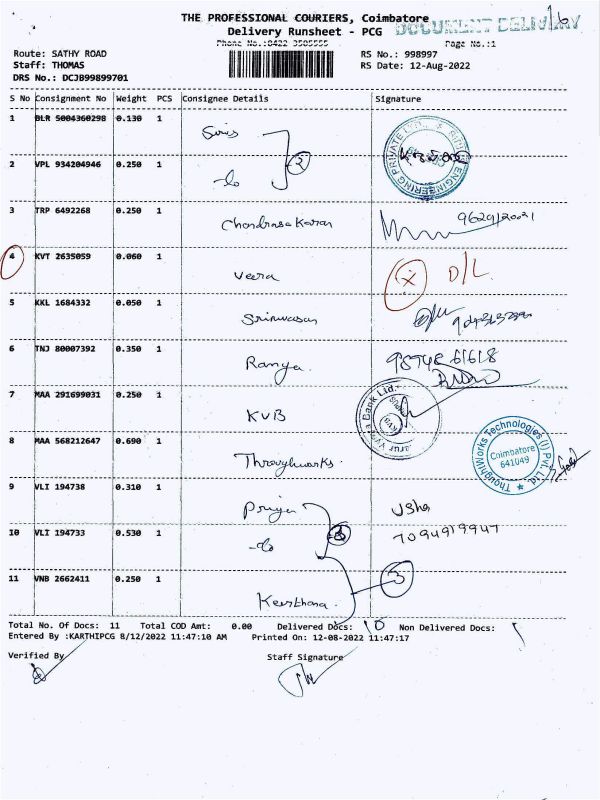 THE PROFESSIONAL COURIERS, Coimbatore
Delivery Runsheet - PCG
DOCUMENT DELIVERY
Phone No.:0422 3505555 Page No.:1
Route: SATHY ROAD RS No.: 998997
Staff: THOMAS RS Date: 12-Aug-2022
DRS No.: DCJB99899701
S No Consignment No Weight PCS Consignee Details Signature
1 BLR 5004360298 0.130 1
2 VPL 934204946 0.250 1 -do 2
3 TRP 6492268 0.250 1 Chandrasekaran
4 KVT 2635059 0.060 1 Veera x D/L
5 KKL 1684332 0.050 1 Srinivasan
6 TNJ 80007392 0.350 1 Ramya
7 MAA 291699031 0.250 1 KVB
Karur Vysya Bank Ltd.
8 MAA 568212647 0.690 1 Throughworks.
ThoughtWorks Technologies (I) Pvt. Ltd.
Coimbatore
641049
9 VLI 194738 0.310 1 Priya Usha
10 VLI 194733 0.530 1 -do 7094919947
11 VNB 2662411 0.250 1 Keerthana. 3
Total No. Of Docs: 11 Total COD Amt: 0.00 Delivered Docs: 10 Non Delivered Docs: 1
Entered By :KARTHIPCG 8/12/2022 11:47:10 AM Printed On: 12-08-2022 11:47:17
Verified By Staff Signature